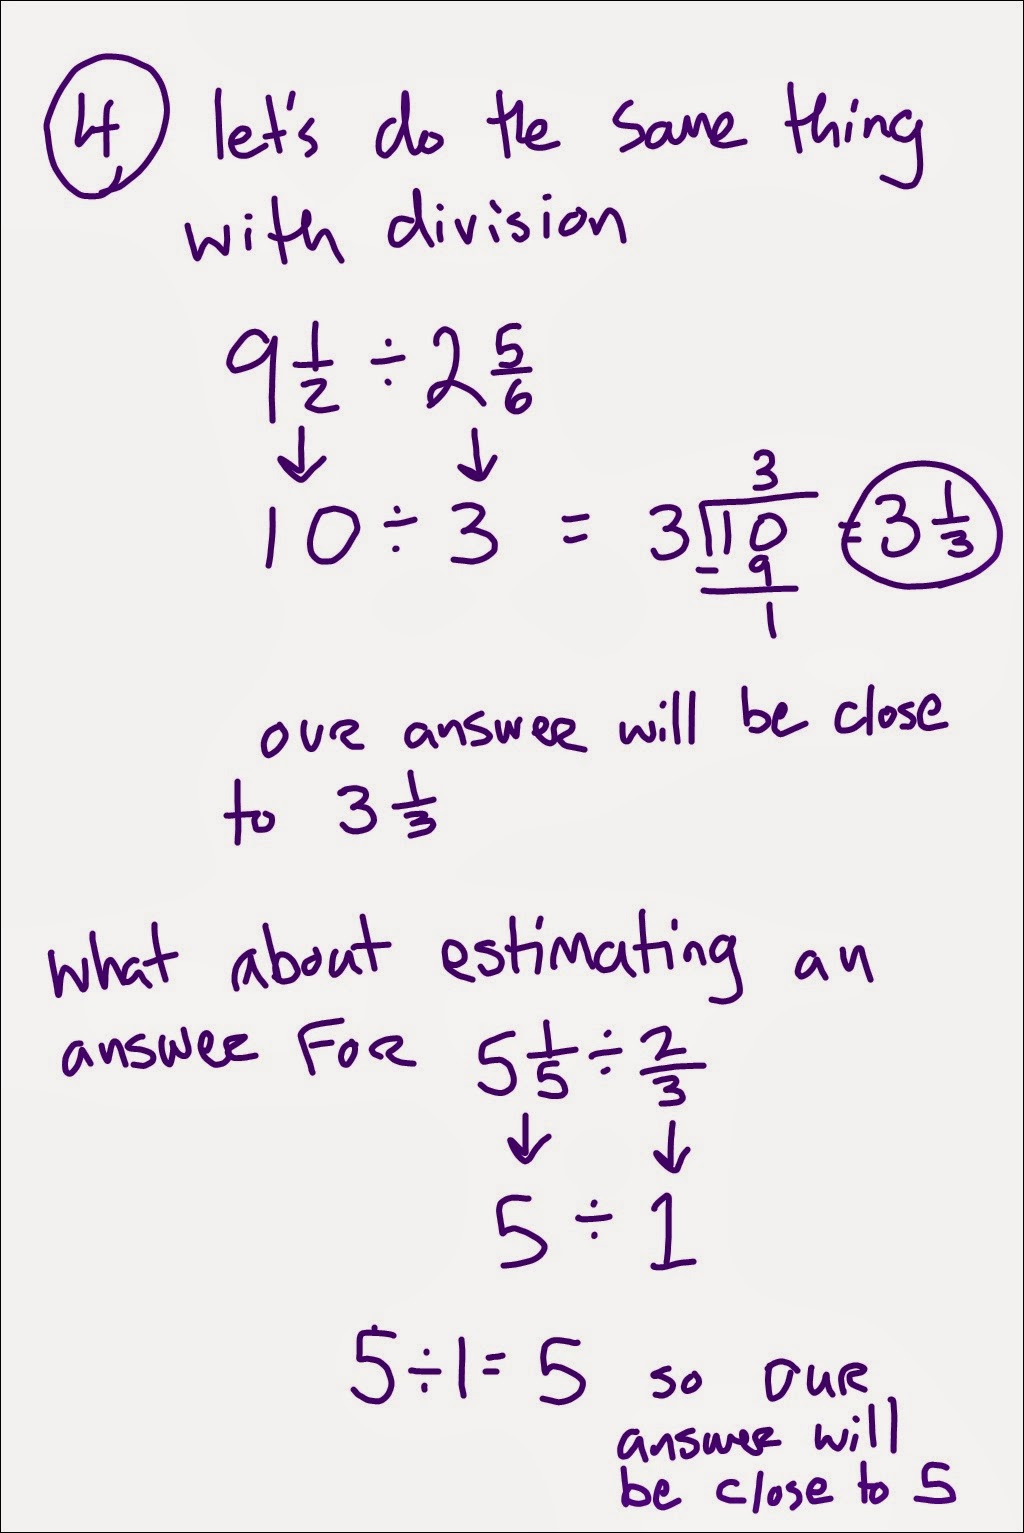 4 let's do the same thing
with division
9 1/2 ÷ 2 5/6
↓ ↓
3
10 ÷ 3 = 3⟌10 = 3 1/3
- 9
1
our answer will be close
to 3 1/3
what about estimating an
answer For 5 1/5 ÷ 2/3
↓ ↓
5 ÷ 1
5 ÷ 1 = 5 so our
answer will
be close to 5